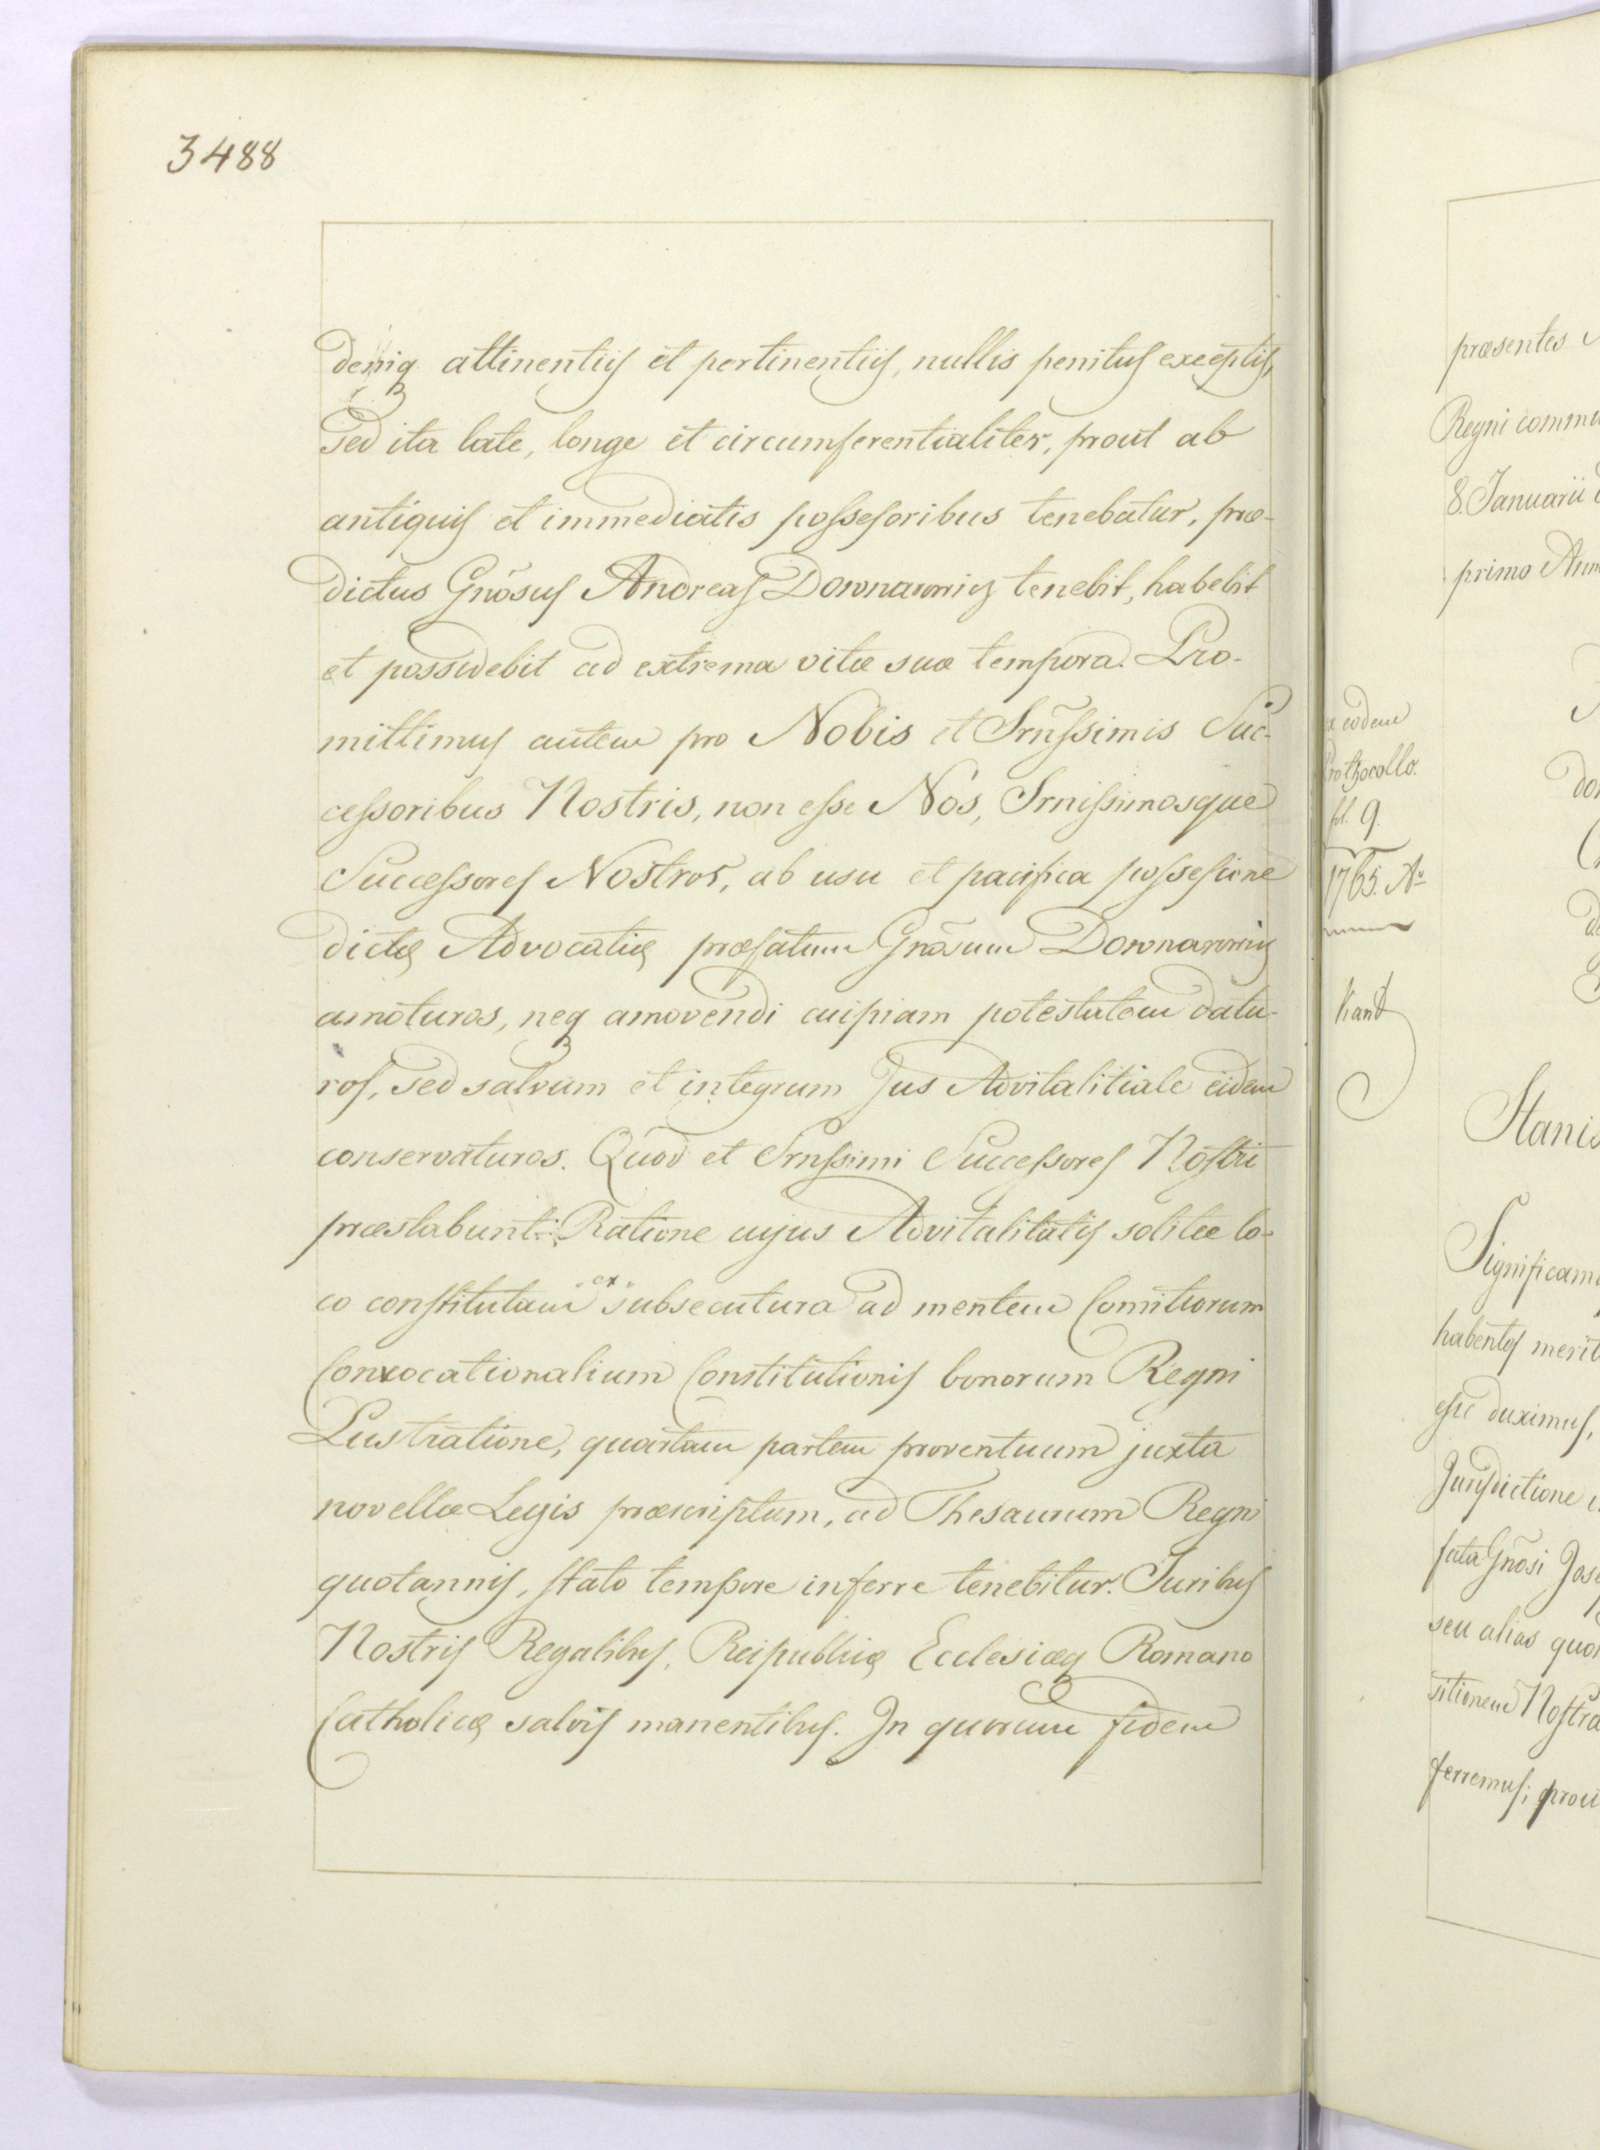 3488
deniq attinentiis et pertinentiis, nullis penitus exceptis,
sed ita late, longe et circumferentialiter, prout ab
antiquis et immediatis possessoribus tenebatur, præ-
dictus Gnõsus Andreas Downarowicz tenebit, habebit
et possidebit ad extrema vitæ suæ tempora. Pro-
mittimus autem pro Nobis et Srñssimis Suc-
cessoribus Nostris, non esse Nos, Srnissimosque
Successores Nostros, ab usu et pacifica possessione
dictæ Advocatiæ præfatum Gnõsum Downarowicz
amoturos, neq amovendi cuipiam potestatem datu-
ros, sed salvum et integrum Jus Advitalitiale eidem
conservaturos. Quod et Srnssimi Successores Nostri
præstabunt. Ratione cujus Advitalitatis solitæ lo-
co constitutam ex subsecutura ad mentem Comitiorum
Convocationalium Constitutionis bonorum Regni
Lustratione, quartam partem proventuum juxta
novellæ Legis præscriptum, ad Thesaurum Regni
quotannis, stato tempore inferre tenebitur. Juribus
Nostris Regalibus, Reipublicæ Ecclesiæq Romano
Catholicæ salvis manentibus. In quorum fidem
eodem
Prothocollo.
fol. 9.
1765. Aº
præsentes
Regni commu
8. Januarii
primo Ann
Stanis
Significam
habentes merit
esse duximus,
Jurisdictione
fata Gnõsi Jos
seu alias quo
sitionem Nostra
ferremus; prou